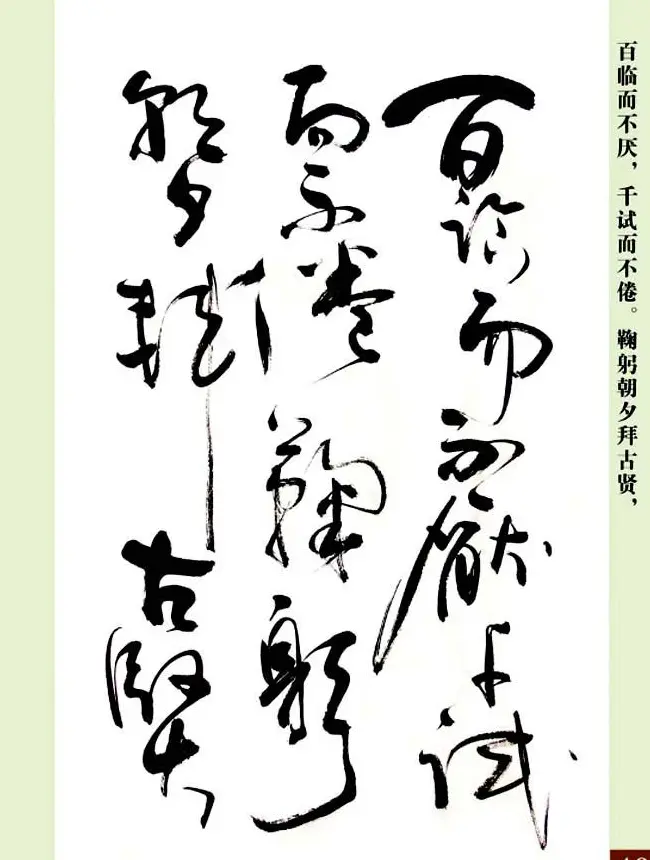 百临而不厌，千试而不倦。鞠躬朝夕拜古贤，
百临而不厭千试
而不倦鞠躬
朝夕拜古贤